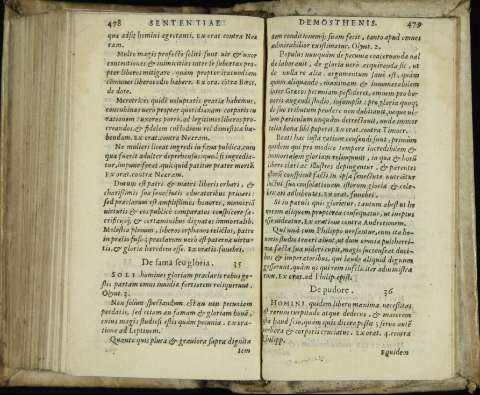 478 SENTENTIAE
que adsit homini egestanti. EX orat. contra Nea
ram.
Multo magis profecto soliti sunt vir & uxor
contentiones & inimicitias inter se susceptas pro
pter liberos mitigare, quàm propter iracundiam
communes liberos odio habere. EX ora. contra Bœot.
de dote.
Meretrices quidē voluptatis gratia habemus,
concubinas vero propter quotidianam corporis cu
rationem: uxores porrò, ad legitimos liberos pro-
creandos, & fidelem custodiam rei domesticæ ha-
bendam. EX orat. contra Neæram.
Ne mulieri liceat ingredi in fana publica, cum
qua fuerit adulter deprehensus: quòd si ingredia-
tur, impunè faciat, quicquid patitur præter mortē.
EX orat. contra Neæram.
Durum est patri & matri liberis orbari, &
charissimis suæ senectutis educatoribus privari:
sed præclarum est amplissimos honores, memoriā
virtutis & eos publicè comparatos conspicere sa-
crificijs & certaminibus dignatos immortalib.
Molestū plerunq; liberos orphanos relictos, patre
in pretio fuisse: præclarum vero est paternæ virtu-
tis, & gloriæ hæredem esse. EX oratio. funebri.
De fama seu gloria. 15
SOLI homines gloriam præclaris rebus ge-
stis partam omni invidia fortiorem relinquunt.
Olynt. 3.
Non solum spectandum est, an non pecuniam
perdatis, sed etiam an famam & gloriam bonā,
cuius magis studiosi estis quàm pecuniæ. EX ora-
tione ad Leptinem.
Quanto quis plura & graviora supra dignita
tem
DEMOSTHENIS. 479
tem conditionemq; suam fecit, tanto apud omnes
admirabilior existimatur. Olynt. 2.
Populus nunquam de pecunia coacervanda
de laboravit, de gloria vero acquirenda sic, ut
de nulla re alia: argumentum sanè est, quòd
quum aliquando maximam
inter Græcos pecuniam possideret, omnem pro ho-
noris augendi studio, insumpsit: pro gloria quoq;
de suo tributum pendere non dubitavit, neque ul-
lum periculum unquam detrectavit, unde immor
talia bona sibi peperit. EX orat. contra Timocr.
Beati hac iusta ratione censendi sunt, primùm
quidem qui pro modico tempore incredibilem &
immortalem gloriam relinquunt, in qua & horū
liberi clari ac illustres degingetur, & parentes
horū conspicui facti in ipsa senectute nutriētur
luctus sui consolationem istorum gloria & cele-
britate adhibentes. EX orat. funebri.
Si tu patriis quis glorietur, tantum abest ut ho
norem aliquem propterea consequatur, ut turpius
esse videatur. EX oratione contra Androtionem.
Qui nunc cum Philippo versantur, eum ita ho-
noris studio teneri aiunt, ut dum omnia pulcherri-
ma facta, sua videri cupit, magis succenseat duci-
bus & imperatoribus, qui laude aliquid dignum
gesserunt, quàm ijs qui rem infeliciter administra
rint. EX orat. ad Philip. epist.
De pudore. 36
HOMINI quidem libero maxima necessitas,
est rerum turpitudo atque dedecus, & maiorem
ista haud scio, quàm quis dicere possit: servo autē
verbera & corporis cruciatus. EX orat. 4. contra
Philipp.
Equidem